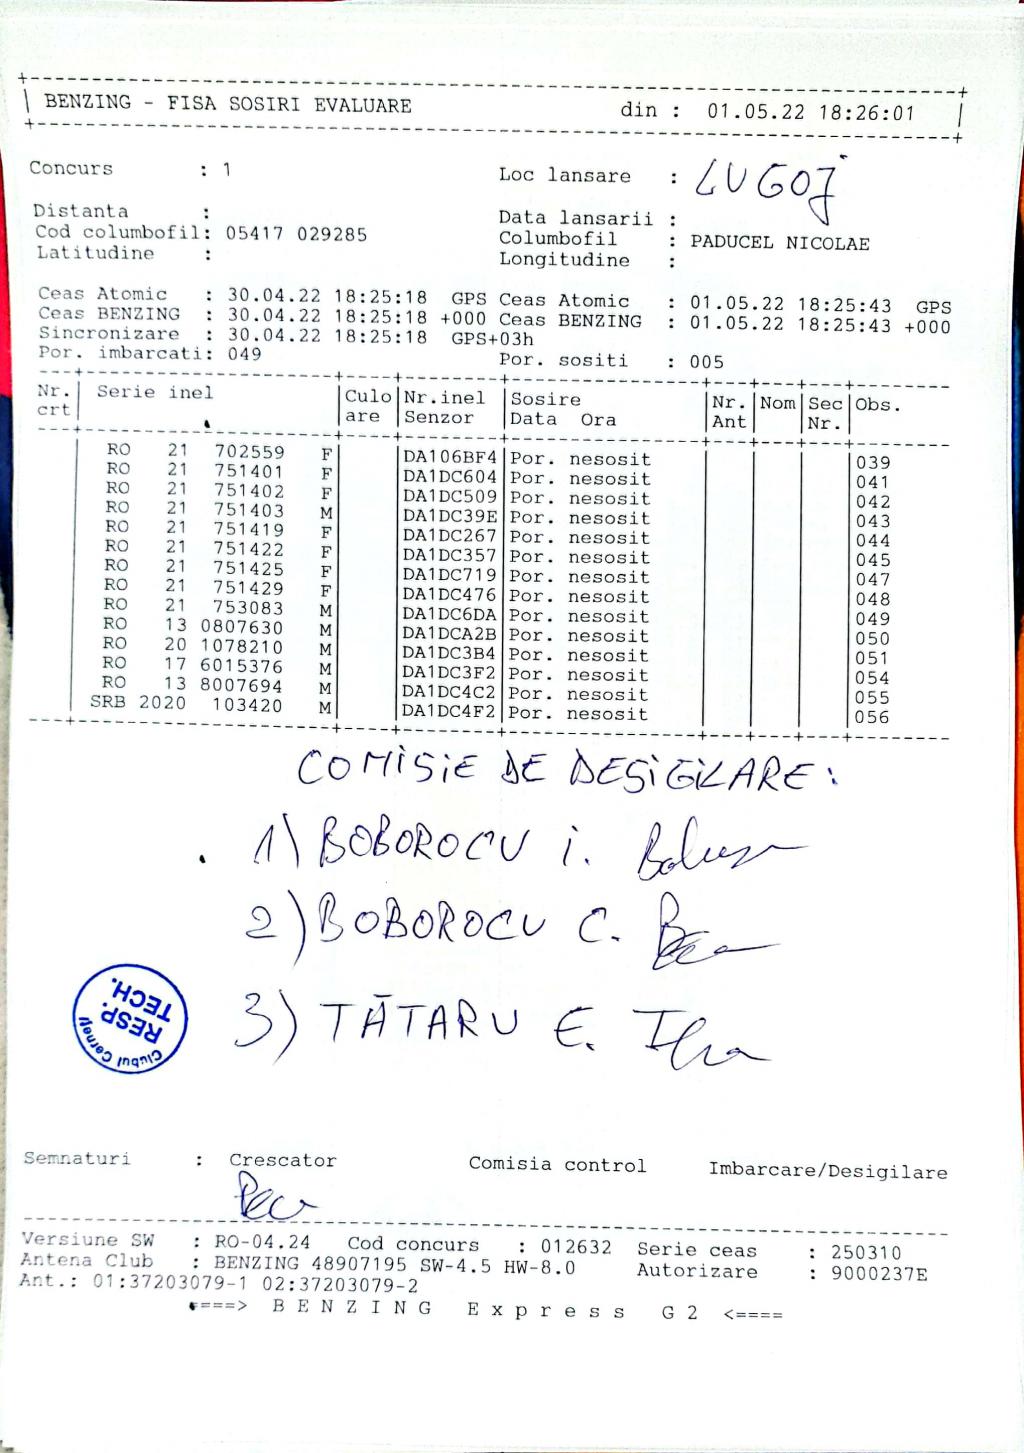 BENZING - FISA SOSIRI EVALUARE din : 01.05.22 18:26:01
Concurs : 1 Loc lansare : LUGOJ
Distanta : Data lansarii :
Cod columbofil: 05417 029285 Columbofil : PADUCEL NICOLAE
Latitudine : Longitudine :
Ceas Atomic : 30.04.22 18:25:18 GPS Ceas Atomic : 01.05.22 18:25:43 GPS
Ceas BENZING : 30.04.22 18:25:18 +000 Ceas BENZING : 01.05.22 18:25:43 +000
Sincronizare : 30.04.22 18:25:18 GPS+03h
Por. imbarcati: 049 Por. sositi : 005
Nr. Serie inel Culo Nr.inel Sosire Nr. Nom Sec Obs.
crt are Senzor Data Ora Ant Nr.
RO 21 702559 F DA106BF4 Por. nesosit 039
RO 21 751401 F DA1DC604 Por. nesosit 041
RO 21 751402 F DA1DC509 Por. nesosit 042
RO 21 751403 M DA1DC39E Por. nesosit 043
RO 21 751419 F DA1DC267 Por. nesosit 044
RO 21 751422 F DA1DC357 Por. nesosit 045
RO 21 751425 F DA1DC719 Por. nesosit 047
RO 21 751429 F DA1DC476 Por. nesosit 048
RO 21 753083 M DA1DC6DA Por. nesosit 049
RO 13 0807630 M DA1DCA2B Por. nesosit 050
RO 20 1078210 M DA1DC3B4 Por. nesosit 051
RO 17 6015376 M DA1DC3F2 Por. nesosit 054
RO 13 8007694 M DA1DC4C2 Por. nesosit 055
SRB 2020 103420 M DA1DC4F2 Por. nesosit 056
COMISIE DE DESIGILARE:
1) BOBOROCU i.
2) BOBOROCU C.
3) TĂTARU E.
RESP.
TECH.
Clubul Cerneți
Semnaturi : Crescator Comisia control Imbarcare/Desigilare
Versiune SW : RO-04.24 Cod concurs : 012632 Serie ceas : 250310
Antena Club : BENZING 48907195 SW-4.5 HW-8.0 Autorizare : 9000237E
Ant.: 01:37203079-1 02:37203079-2
====> BENZING Express G2 <====